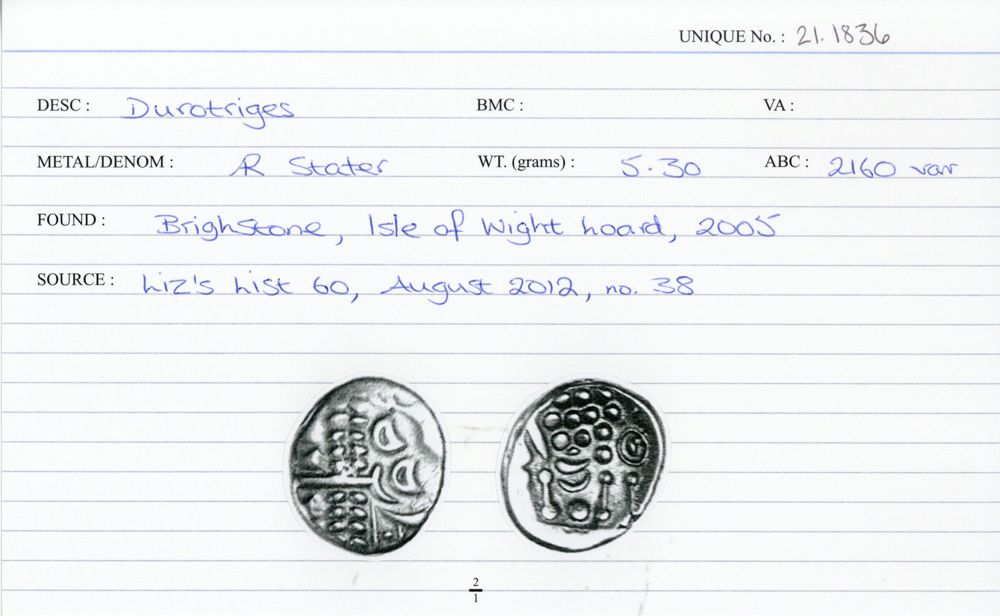 UNIQUE No. : 21.1836
DESC : Durotriges BMC : VA :
METAL/DENOM : AR Stater WT. (grams) : 5.30 ABC : 2160 var
FOUND : Brighstone, Isle of Wight hoard, 2005
SOURCE : Liz's List 60, August 2012, no. 38
2
1